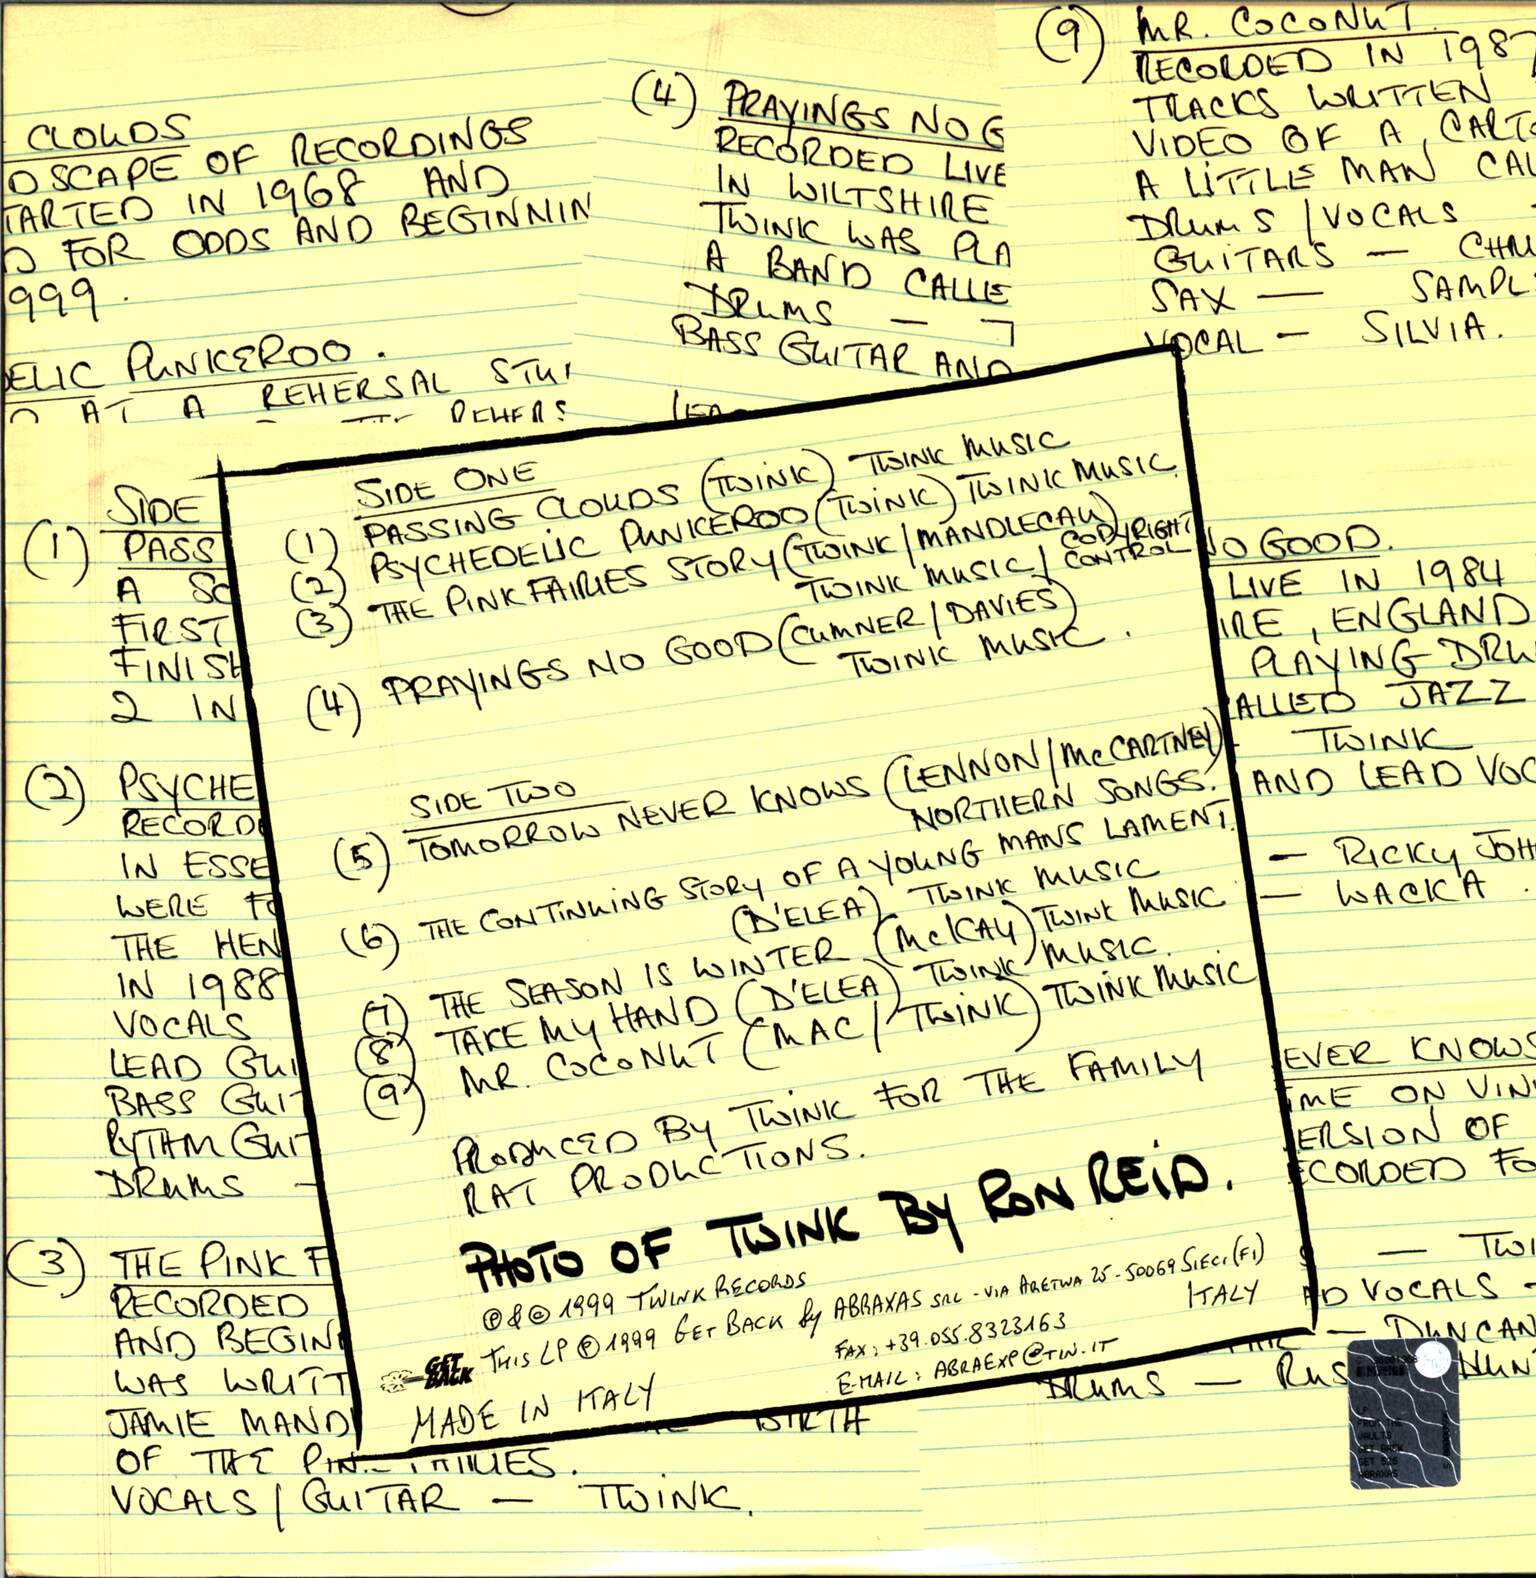 CLOUDS
SCAPE OF RECORDINGS
TARTED IN 1968 AND
FOR ODDS AND BEGINNIN
999.
ELIC PUNKEROO.
AT A REHERSAL STU
REHERS
(4) PRAYINGS NO G
RECORDED LIVE
IN WILTSHIRE
TWINK WAS PLA
A BAND CALLE
DRUMS — T
BASS GUITAR AND
LEA
(9) MR. COCONUT.
RECORDED IN 1987
TRACKS WRITTEN
VIDEO OF A CARTO
A LITTLE MAN CAL
DRUMS / VOCALS
GUITARS — CHR
SAX — SAMPL
VOCAL — SILVIA.
SIDE
(1) PASS
A SC
FIRST
FINISH
2 IN
(2) PSYCHE
RECORD
IN ESSE
WERE FO
THE HEN
IN 1988
VOCALS
LEAD GUI
BASS GUIT
RYTHM GUIT
DRUMS —
(3) THE PINK F
RECORDED
AND BEGIN
WAS WRITT
JAMIE MAND
BIRTH
OF THE PINK FAIRIES.
VOCALS / GUITAR — TWINK.
SIDE ONE
(1) PASSING CLOUDS (TWINK) TWINK MUSIC
(2) PSYCHEDELIC PUNKEROO (TWINK) TWINK MUSIC.
(3) THE PINK FAIRIES STORY (TWINK/MANDLECAU)
TWINK MUSIC / COPYRIGHT CONTROL
(4) PRAYINGS NO GOOD (CUMNER/DAVIES)
TWINK MUSIC.
SIDE TWO
(5) TOMORROW NEVER KNOWS (LENNON/McCARTNEY)
NORTHERN SONGS.
(6) THE CONTINUING STORY OF A YOUNG MANS LAMENT.
(D'ELEA) TWINK MUSIC
(7) THE SEASON IS WINTER (McKAY) TWINK MUSIC
(8) TAKE MY HAND (D'ELEA) TWINK MUSIC.
(9) MR. COCONUT (MAC/TWINK) TWINK MUSIC
PRODUCED BY TWINK FOR THE FAMILY
RAT PRODUCTIONS.
PHOTO OF TWINK BY RON REID.
℗ & © 1999 TWINK RECORDS
THIS LP © 1999 GET BACK by ABRAXAS SRL - VIA ARETINA 25 - 50069 SIECI (FI)
ITALY
FAX: +39.055.8323163
E-MAIL: ABRAEXP@TIN.IT
GET BACK
MADE IN ITALY
NO GOOD.
LIVE IN 1984
IRE, ENGLAND
PLAYING DRU
ALLED JAZZ
TWINK
AND LEAD VOC
— RICKY JOH
— WACKA.
EVER KNOWS
IME ON VIN
ERSION OF
ECORDED FO
S — TWI
AD VOCALS —
— DUNCAN
DRUMS — RUS HUNT
LP
FROM THE
VAULTS
GET BACK
GET 526
ABRAXAS